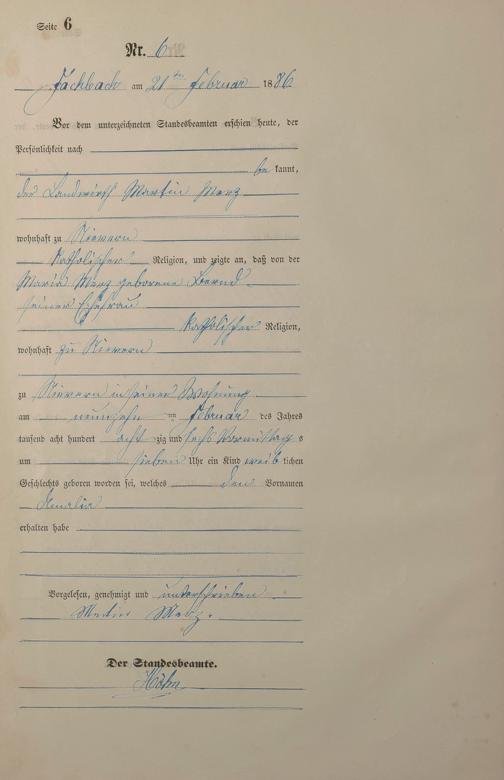 Seite 6
Nr. 6
Fachbach am 21ten Februar 1886
Vor dem unterzeichneten Standesbeamten erschien heute, der
Persönlichkeit nach
be kannt,
der Landwirth Martin Merz
wohnhaft zu Nievern
katholischer Religion, und zeigte an, daß von der
Maria Merz geborene Bernd
seiner Ehefrau
katholischer Religion,
wohnhaft zu Nievern
zu Nievern in seiner Wohnung
am neunzehn ten Februar des Jahres
tausend acht hundert acht zig und sechs Vormittag s
um sieben Uhr ein Kind weib lichen
Geschlechts geboren worden sei, welches den Vornamen
Amalia
erhalten habe
Vorgelesen, genehmigt und unterschrieben
Martin Merz.
Der Standesbeamte.
Höhn